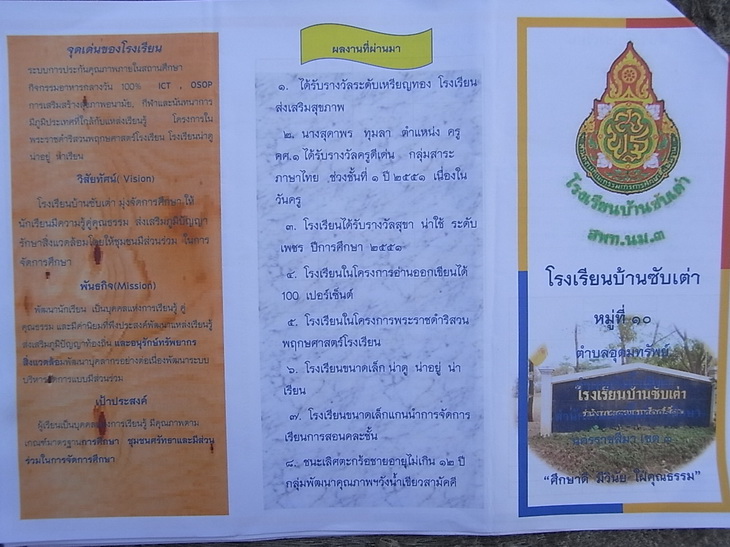 จุดเด่นของโรงเรียน
ระบบการประกันคุณภาพภายในสถานศึกษา
กิจกรรมอาหารกลางวัน 100% ICT , OSOP
การเสริมสร้างสุขภาพอนามัย, กีฬาและนันทนาการ
มีภูมิประเทศที่ใกล้กับแหล่งเรียนรู้ โครงการใน
พระราชดำริสวนพฤกษศาสตร์โรงเรียน โรงเรียนน่าดู
น่าอยู่
วิสัยทัศน์( Vision)
โรงเรียนบ้านซับเต่า มุ่งจัดการศึกษา ให้
นักเรียนมีความรู้คู่คุณธรรม ส่งเสริมภูมิปัญญา
รักษาสิ่งแวดล้อมโดยให้ชุมชนมีส่วนร่วม ในการ
จัดการศึกษา
พันธกิจ(Mission)
พัฒนานักเรียน เป็นบุคคลแห่งการเรียนรู้ คู่
คุณธรรม และมีค่านิยมที่พึงประสงค์พัฒนาแหล่งเรียนรู้
ส่งเสริมภูมิปัญญาท้องถิ่น และอนุรักษ์ทรัพยากร
สิ่งแวดล้อมพัฒนาบุคลากรอย่างต่อเนื่องพัฒนาระบบ
บริหารจัดการแบบมีส่วนร่วม
เป้าประสงค์
ผู้เรียนเป็นบุคคลแห่งการเรียนรู้ มีคุณภาพตาม
เกณฑ์มาตรฐานการศึกษา ชุมชนศรัทธาและมีส่วน
ร่วมในการจัดการศึกษา
ผลงานที่ผ่านมา
๑. ได้รับรางวัลระดับเหรียญทอง โรงเรียน
ส่งเสริมสุขภาพ
๒. นางสุดาพร ทุมลา ตำแหน่ง ครู
คศ.๑ ได้รับรางวัลครูดีเด่น กลุ่มสาระ
ภาษาไทย ช่วงชั้นที่ ๑ ปี ๒๕๕๑ เนื่องใน
วันครู
๓. โรงเรียนได้รับรางวัลสุขา น่าใช้ ระดับ
เพชร ปีการศึกษา ๒๕๕๑
๔. โรงเรียนในโครงการอ่านออกเขียนได้
100 เปอร์เซ็นต์
๕. โรงเรียนในโครงการพระราชดำริสวน
พฤกษศาสตร์โรงเรียน
๖. โรงเรียนขนาดเล็ก น่าดู น่าอยู่ น่า
เรียน
๗. โรงเรียนขนาดเล็กแกนนำการจัดการ
เรียนการสอนคละชั้น
๘. ชนะเลิศตะกร้อชายอายุไม่เกิน ๑๒ ปี
กลุ่มพัฒนาคุณภาพฯวังน้ำเขียวสามัคคี
โรงเรียนบ้านซับเต่า
สพท.นม.๓
โรงเรียนบ้านซับเต่า
หมู่ที่ ๑๐
ตำบลอุดมทรัพย์
โรงเรียนบ้านซับเต่า
นครราชสีมา เขต ๓
“ศึกษาดี มีวินัย ใฝ่คุณธรรม”